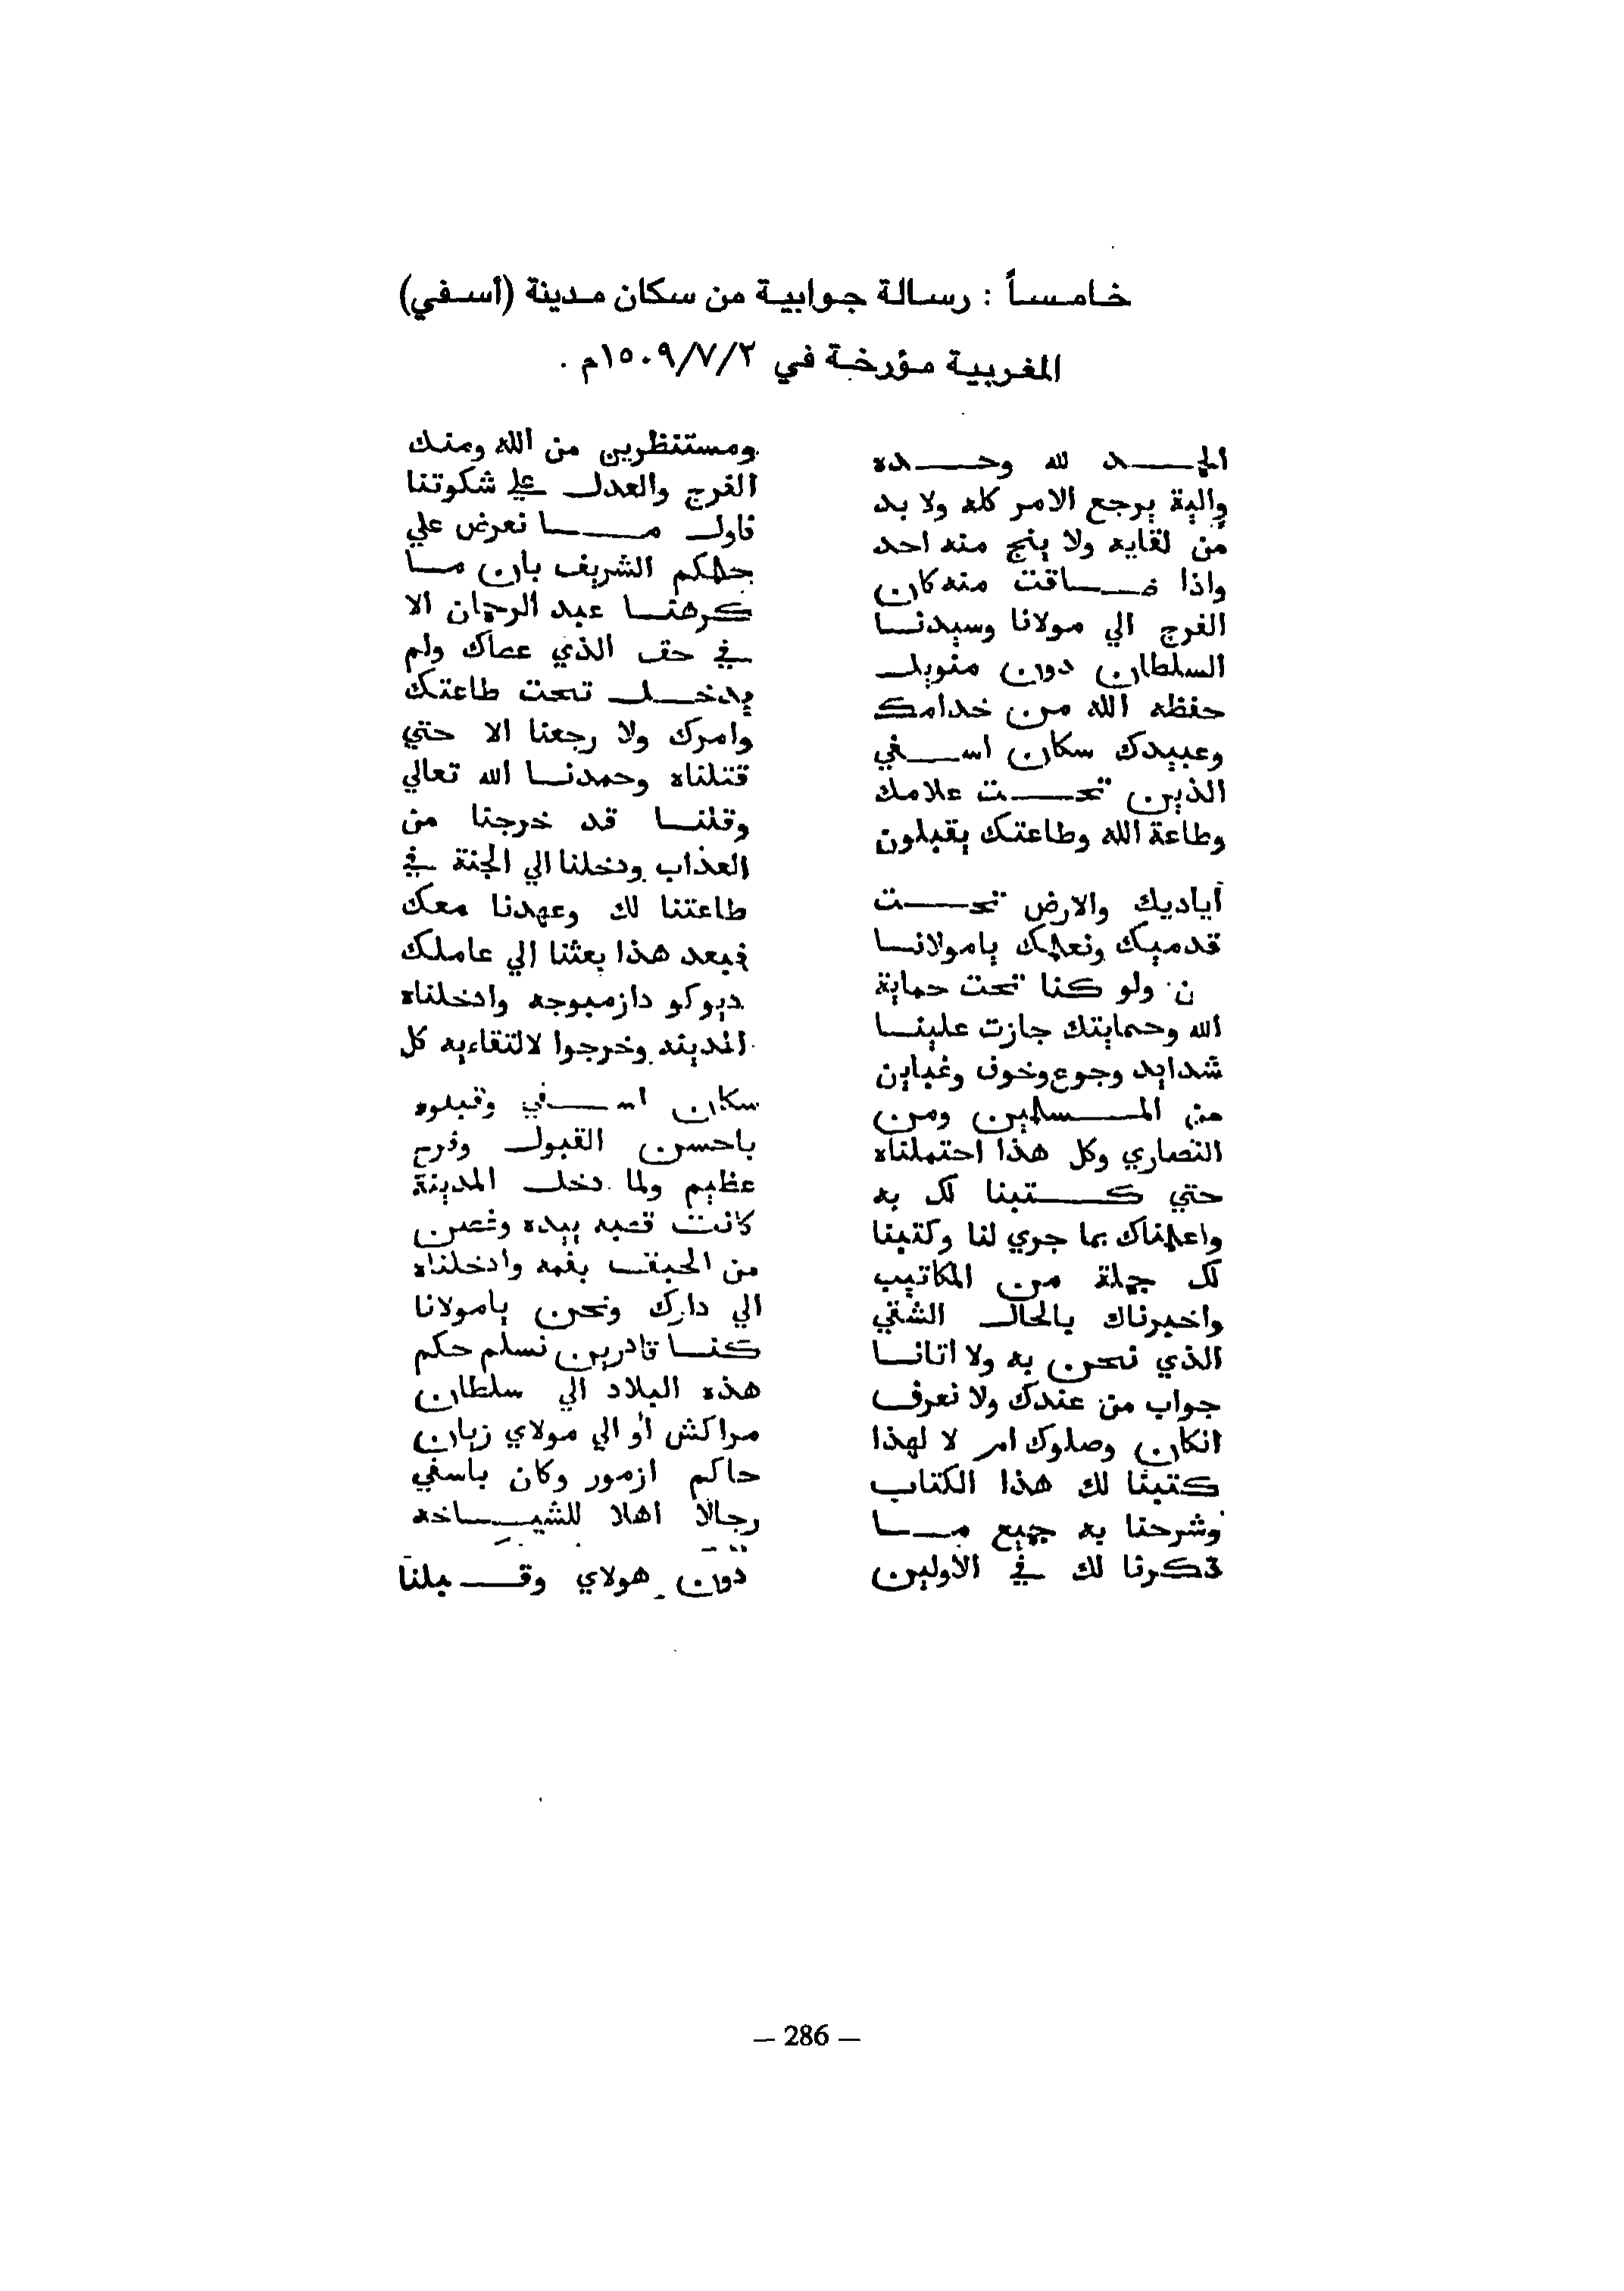 خامساً : رسالة جوابية من سكان مدينة (أسفي)
المغربية مؤرخة في ١٥٠٩/٧/٢م .
الحمد لله وحده
واليه يرجع الامر كله ولا بد
من لقايه ولا ينج منه احد
واذا ضاقت منه كان
الفرج الي مولانا وسيدنا
السلطان دون منويل
حفظه الله من خدامك
وعبيدك سكان اسفي
الذين تحت علامك
وطاعة الله وطاعتك يقبلون
أياديك والارض تحت
قدميك ونعلمك يامولانا
ن ولو كنا تحت حماية
الله وحمايتك جازت علينا
شدايد وجوع وخوف وغباين
من المسلمين ومن
النصاري وكل هذا احتملناه
حتي كتبنا لك به
واعلمناك بما جري لنا وكتبنا
لك جملة من المكاتيب
واخبرناك بالحال الشتي
الذي نحن به ولا اتانا
جواب من عندك ولا نعرف
انكان وصلوك ام لا لهذا
كتبنا لك هذا الكتاب
وشرحنا به جميع ما
ذكرنا لك في الاولين
ومستنظرين من الله ومنك
الفرج والعدل علي شكوتنا
فاول ما نعرض علي
جلكم الشريف بان ما
كرهنا عبد الرحمان الا
في حق الذي عصاك ولم
يدخل تحت طاعتك
وامرك ولا رجعنا الا حتي
قتلناه وحمدنا الله تعالي
وقلنا قد خرجنا من
العذاب ودخلنا الي الجنة في
طاعتنا لك وعهدنا معك
فبعد هذا بعثنا الي عاملك
ديوكو دازمبوجه وادخلناه
المدينه وخرجوا لالتقاءيه كل
سكان اسفي وقبلوه
باحسن القبول وفرح
عظيم ولما دخل المدينة
كانت قصبه بيده وغصن
من الحبق بفمه وادخلناه
الي دارك ونحن يامولانا
كنا قادرين نسلم حكم
هذه البلاد الي سلطان
مراكش أو الي مولاي زيان
حاكم ازمور وكان باسفي
رجالا اهلا للشيـاخه
دون هولاي وقبلنا
— 286 —